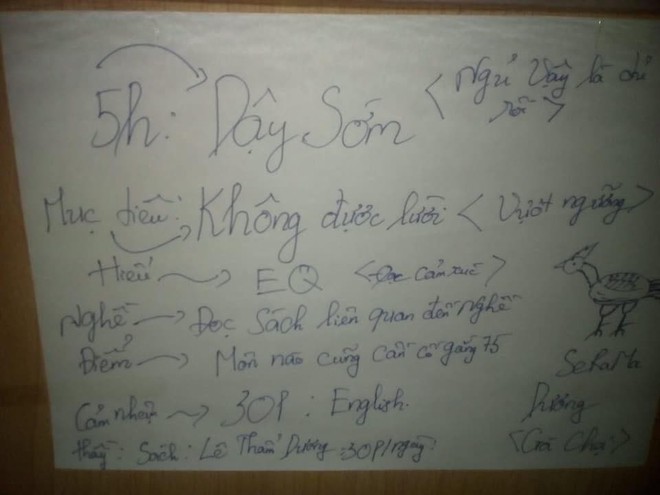 5h: Dậy Sớm < Ngủ vậy là đủ rồi >
Mục tiêu: Không được lười < Vượt ngưỡng >
Hiểu → EQ < Đọc cảm xúc >
Nghề → Đọc sách liên quan đến nghề
Điểm → Môn nào cũng cần cố gắng 75
SeRaMa
Cảm nhận → 30P : English.
Dương
thầy: Sách: Lê Thẩm Dương 30P/ngày